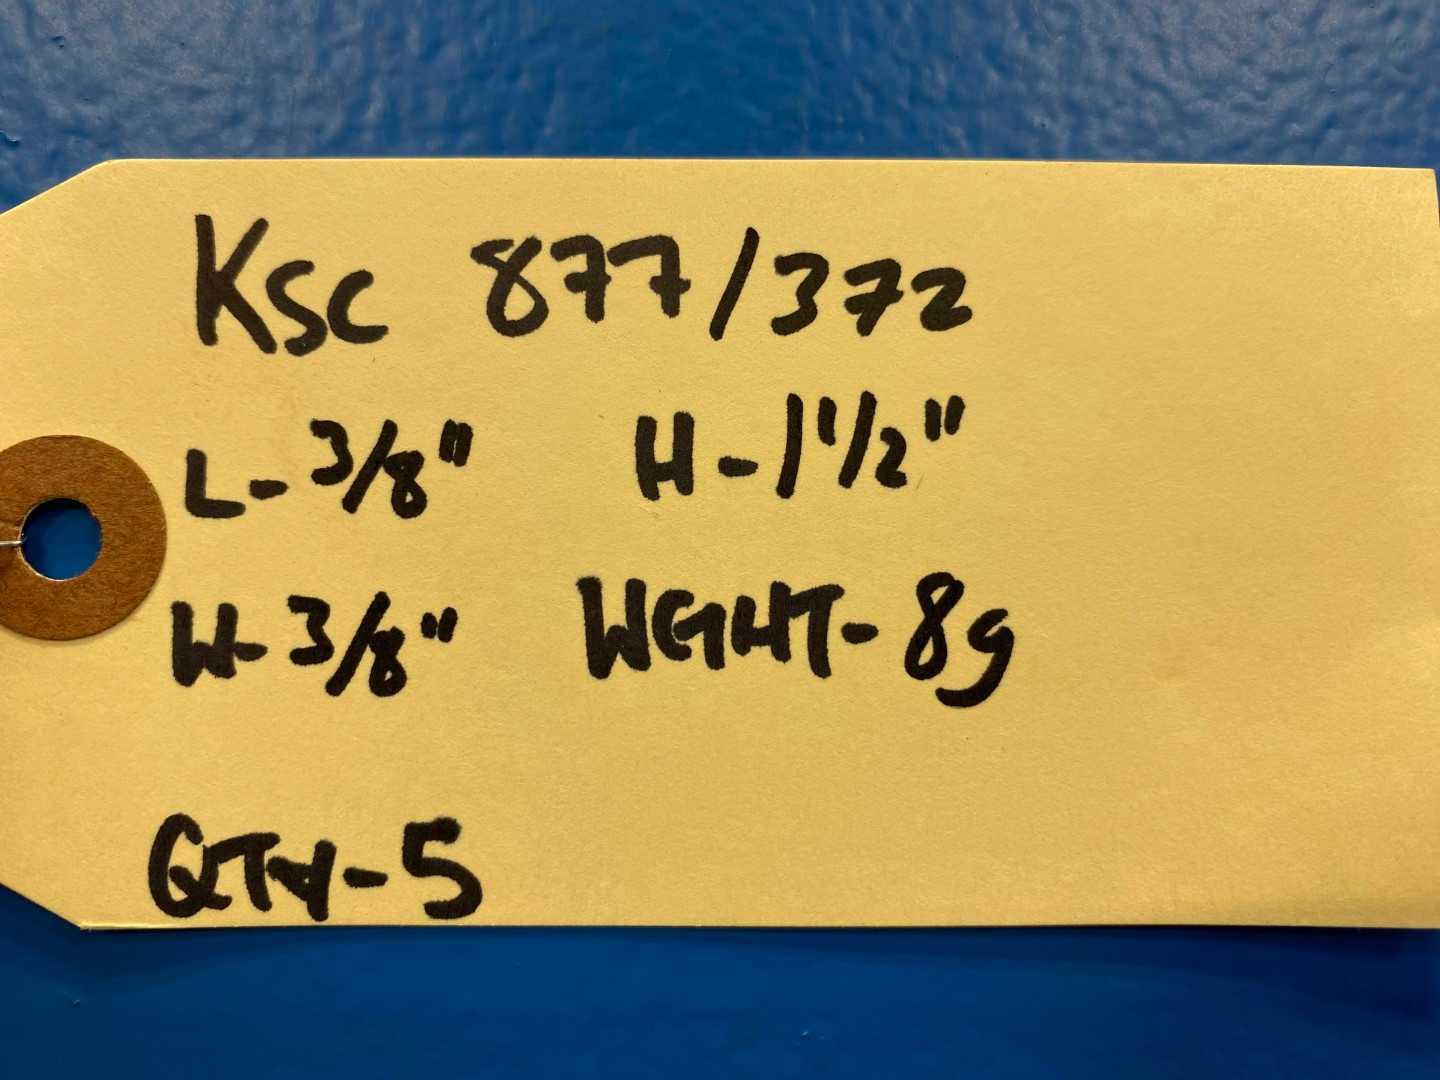 KSC 877/372
L-3/8" H-1 1/2"
W-3/8" WEGHT-8g
QTY-5